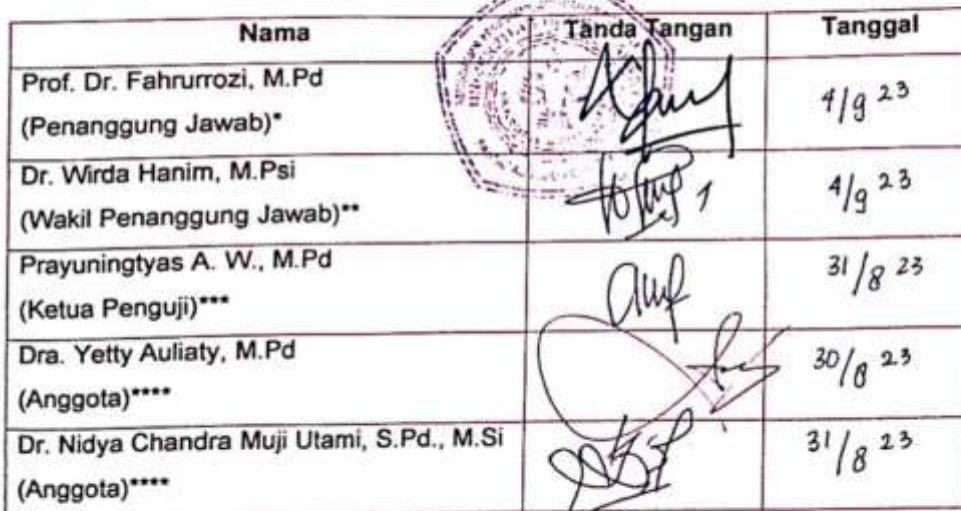 Nama Tanda Tangan Tanggal
Prof. Dr. Fahrurrozi, M.Pd
(Penanggung Jawab)* 4/9 23
Dr. Wirda Hanim, M.Psi
(Wakil Penanggung Jawab)** 4/9 23
Prayuningtyas A. W., M.Pd
(Ketua Penguji)*** 31/8 23
Dra. Yetty Auliaty, M.Pd
(Anggota)**** 30/8 23
Dr. Nidya Chandra Muji Utami, S.Pd., M.Si
(Anggota)**** 31/8 23